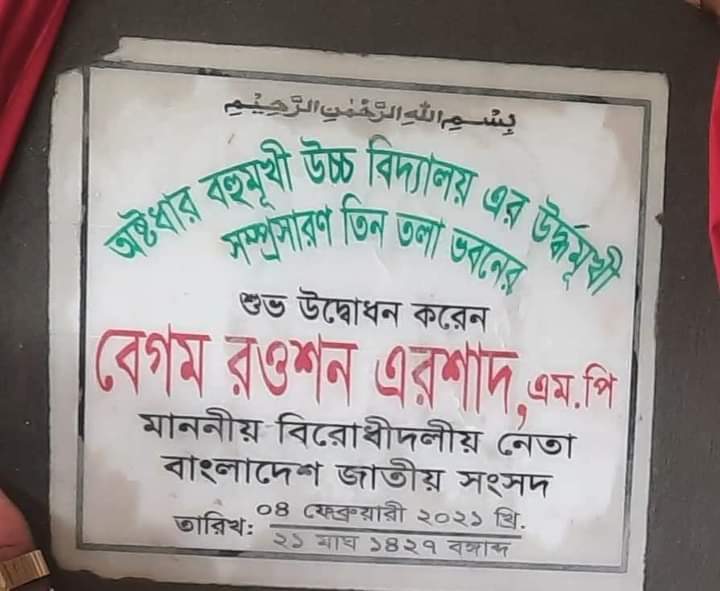 بِسْمِ اللهِ الرَّحْمٰنِ الرَّحِيْمِ
অষ্টধার বহুমূখী উচ্চ বিদ্যালয় এর উর্দ্ধমূখী
সম্প্রসারণ তিন তলা ভবনের
শুভ উদ্বোধন করেন
বেগম রওশন এরশাদ, এম.পি
মাননীয় বিরোধীদলীয় নেতা
বাংলাদেশ জাতীয় সংসদ
তারিখ: ০৪ ফেব্রুয়ারী ২০২১ খ্রি.
২১ মাঘ ১৪২৭ বঙ্গাব্দ